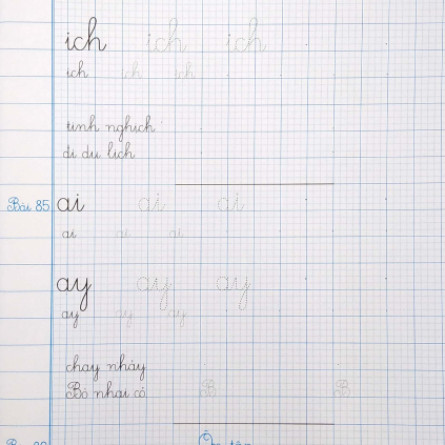 ich ich ich
ich ich ich
tinh nghịch
đi du lịch
Bài 85 ai ai ai
ai ai ai
ay ay ay
ay ay ay
chạy nhảy
Bò nhai cỏ B B
Ôn tập